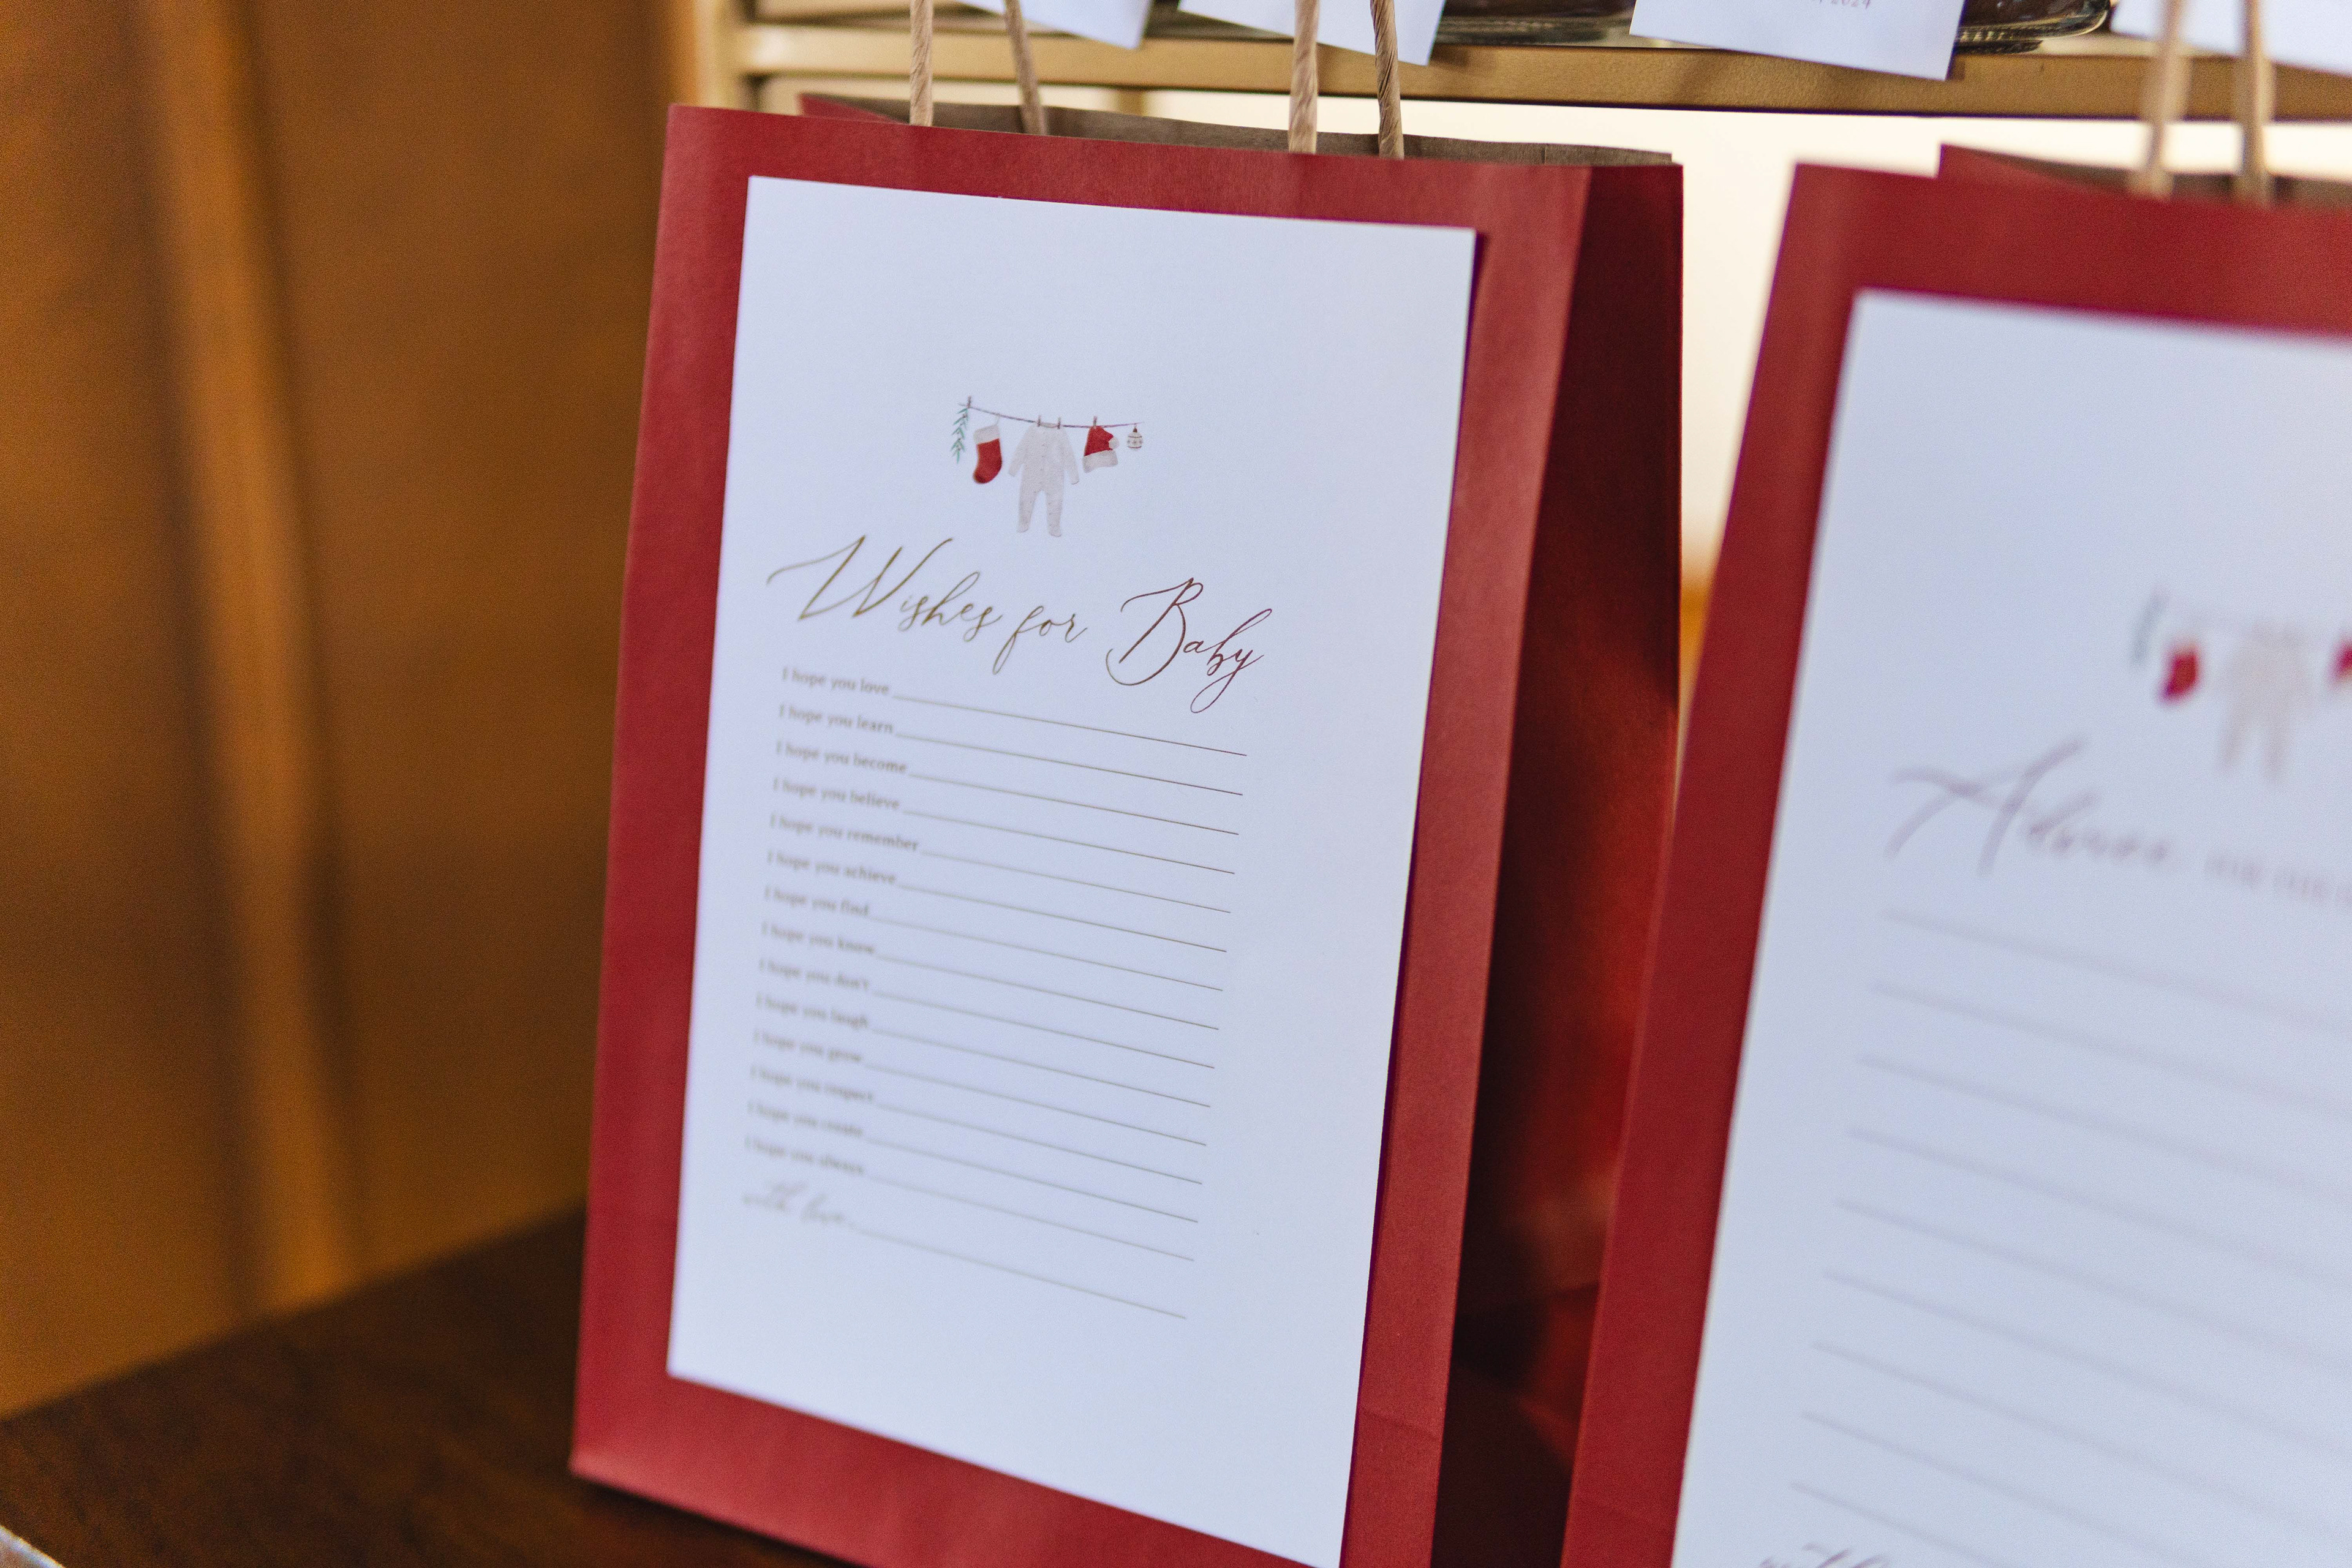 2024
Wishes for Baby
I hope you love
I hope you learn
I hope you become
I hope you believe
I hope you remember
I hope you achieve
I hope you find
I hope you know
I hope you don't
I hope you laugh
I hope you grow
I hope you respect
I hope you create
I hope you always
with love
Advice for the